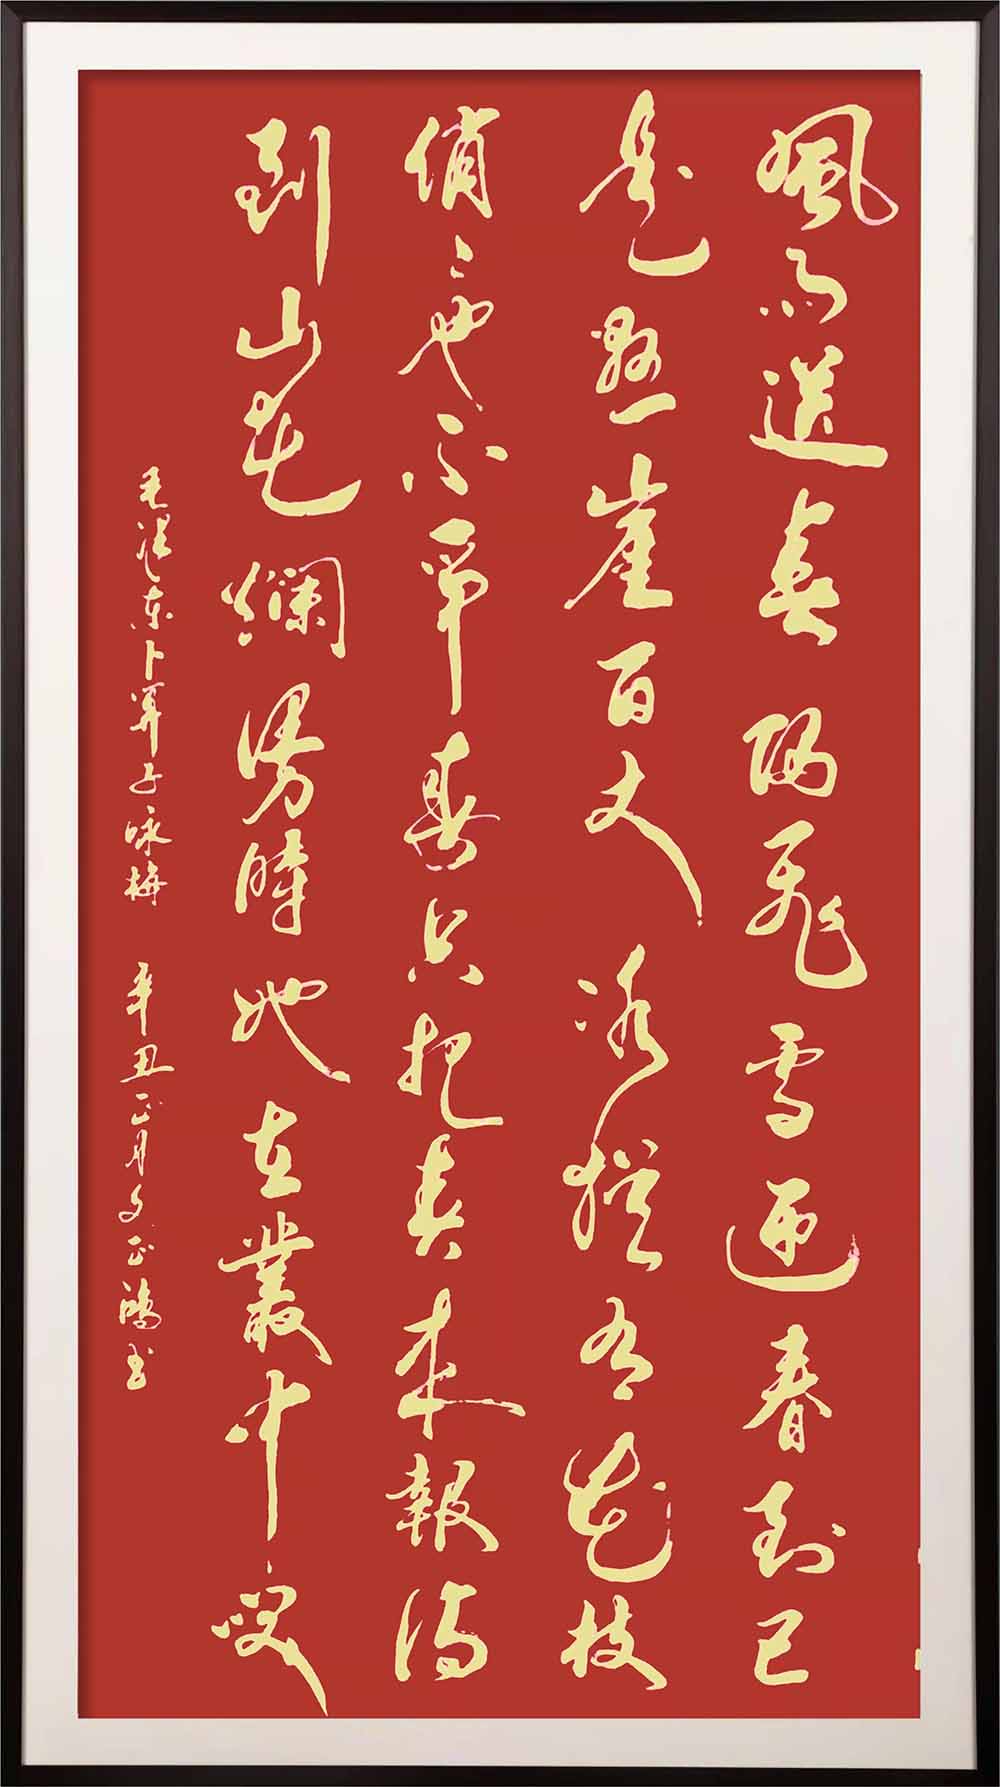 風雨送春歸飛雪迎春到已
是懸崖百丈冰猶有花枝
俏〻也不爭春只把春來報待
到山花爛漫時她在叢中咲
毛泽东卜算子咏梅 辛丑正月文正鴻书